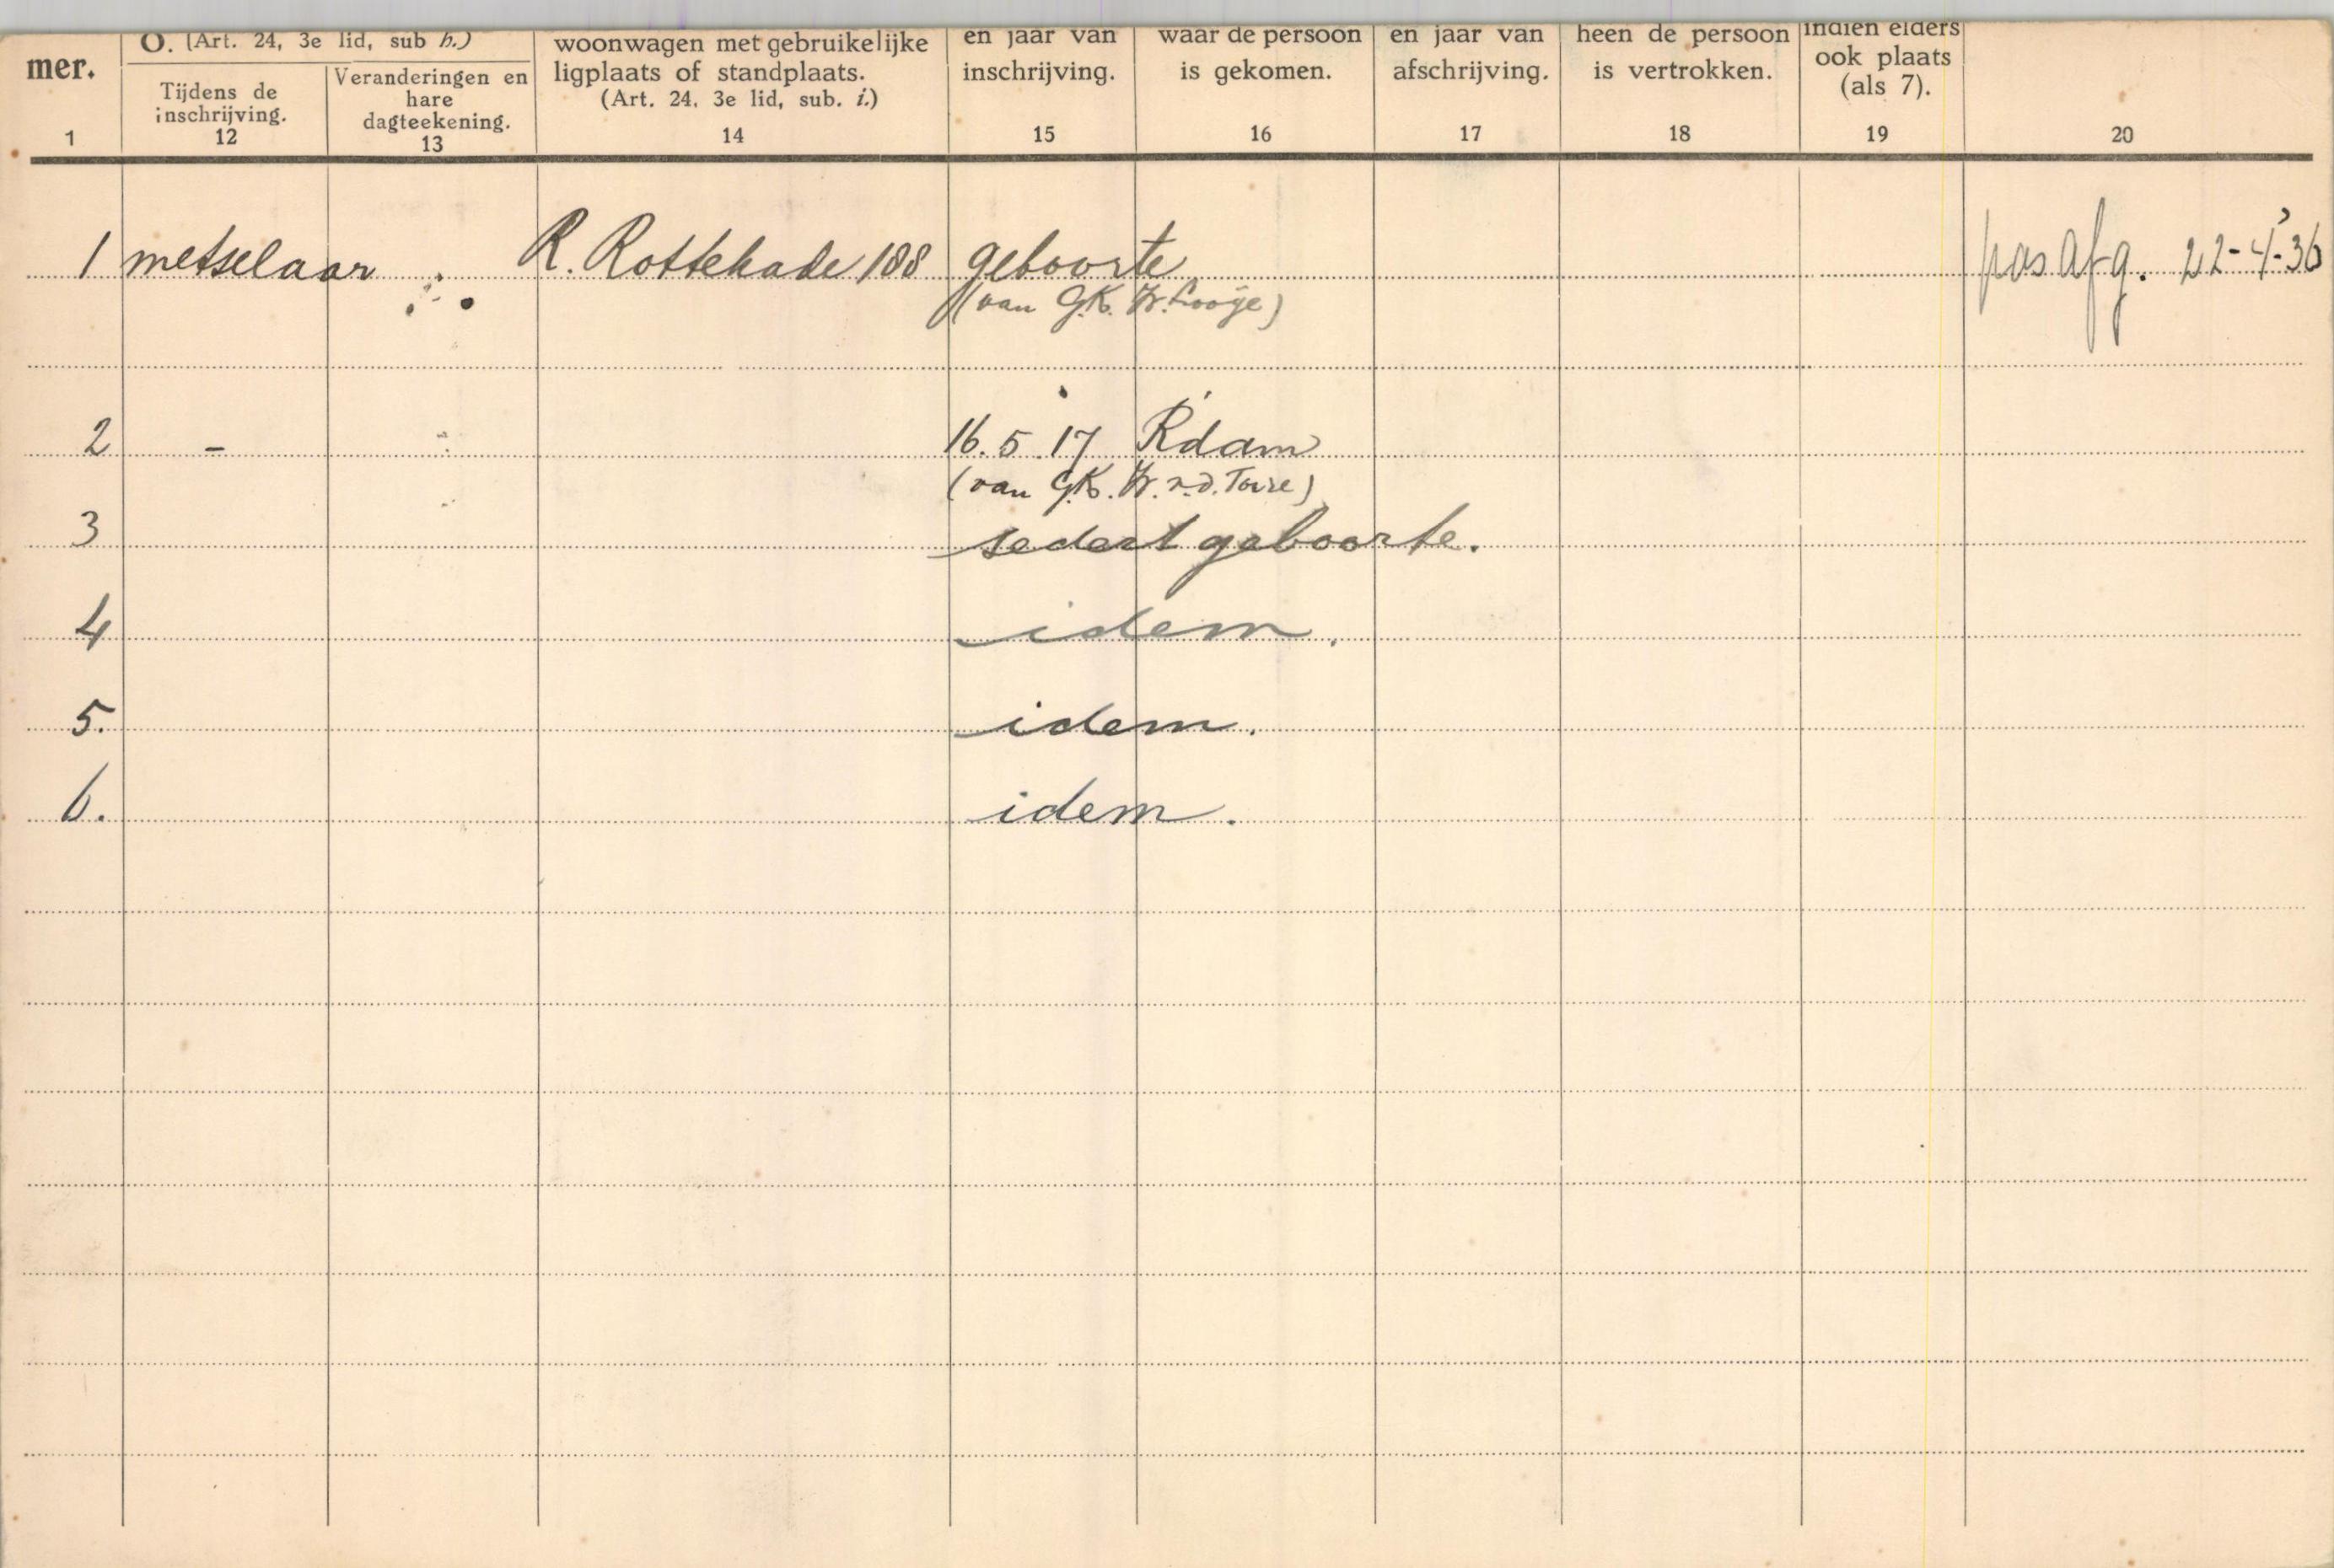 mer.
O. (Art. 24, 3e lid, sub h.)
Tijdens de
inschrijving.
Veranderingen en
hare
dagteekening.
woonwagen met gebruikelijke
ligplaats of standplaats.
(Art. 24, 3e lid, sub. i.)
en jaar van
inschrijving.
waar de persoon
is gekomen.
en jaar van
afschrijving.
heen de persoon
is vertrokken.
indien elders
ook plaats
(als 7).
1 12 13 14 15 16 17 18 19 20
1 metselaar R. Rottekade 188 geboorte pas afg. 22-4-36
(van G.K. W. Looije)
2 - 16.5.17 R'dam
(van G.K. W. v.d.)
3 sedert geboorte.
4 idem.
5. idem.
6. idem.